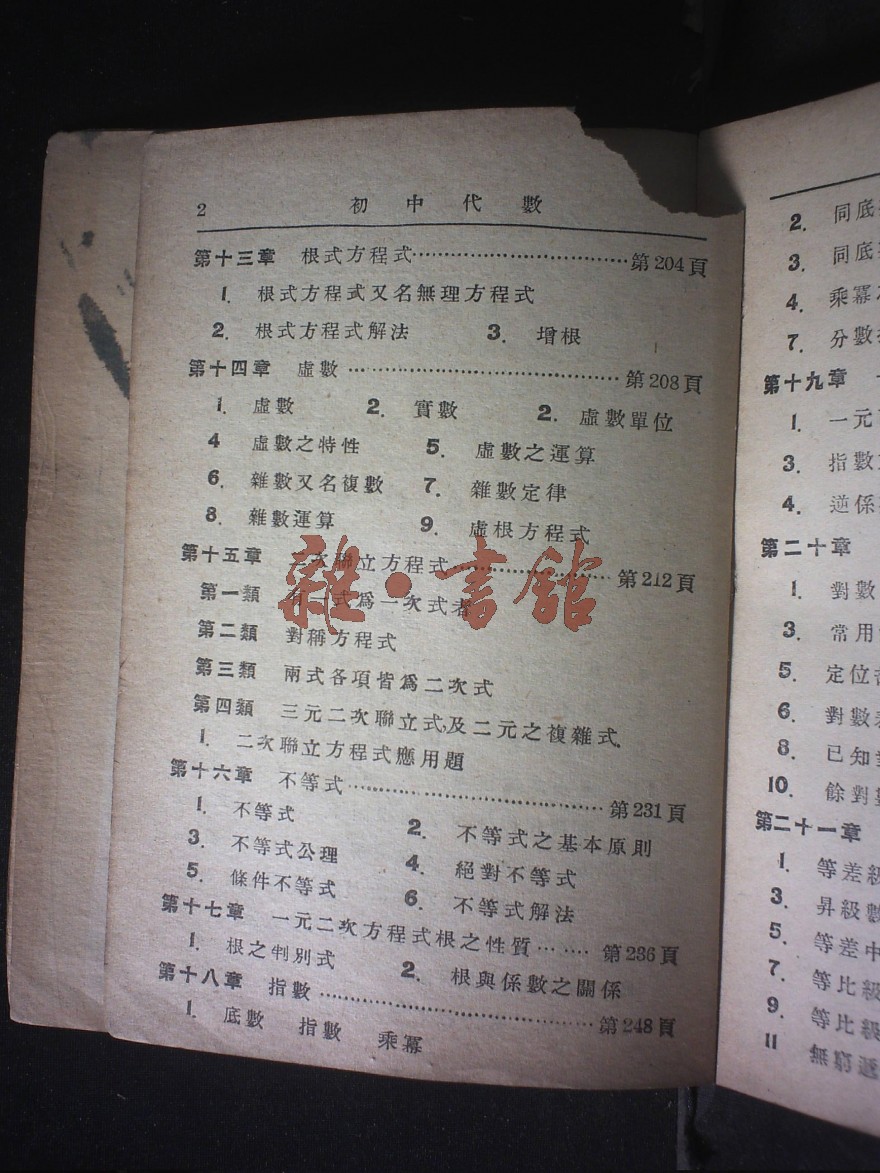 2 初中代數
第十三章 根式方程式……………………………第204頁
1. 根式方程式又名無理方程式
2. 根式方程式解法 3. 增根
第十四章 虛數……………………………………第208頁
1. 虛數 2. 實數 2. 虛數單位
4 虛數之特性 5. 虛數之運算
6. 雜數又名複數 7. 雜數定律
8. 雜數運算 9. 虛根方程式
第十五章 二次聯立方程式……………………第212頁
第一類 有一式爲一次式者
第二類 對稱方程式
第三類 兩式各項皆爲二次式
第四類 三元二次聯立式,及二元之複雜式.
1. 二次聯立方程式應用題
第十六章 不等式…………………………………第231頁
1. 不等式 2. 不等式之基本原則
3. 不等式公理 4. 絕對不等式
5. 條件不等式 6. 不等式解法
第十七章 一元二次方程式根之性質……第236頁
1. 根之判別式 2. 根與係數之關係
第十八章 指數……………………………………第248頁
1. 底數 指數 乘冪
雜·書館
2. 同底
3. 同底
4. 乘冪
7. 分數
第十九章
1. 一元
3. 指數
4. 逆係
第二十章
1. 對數
3. 常用
5. 定位
6. 對數
8. 已知
10. 餘對
第二十一章
1. 等差級
3. 昇級數
5. 等差中
7. 等比級
9. 等比級
11 無窮遞